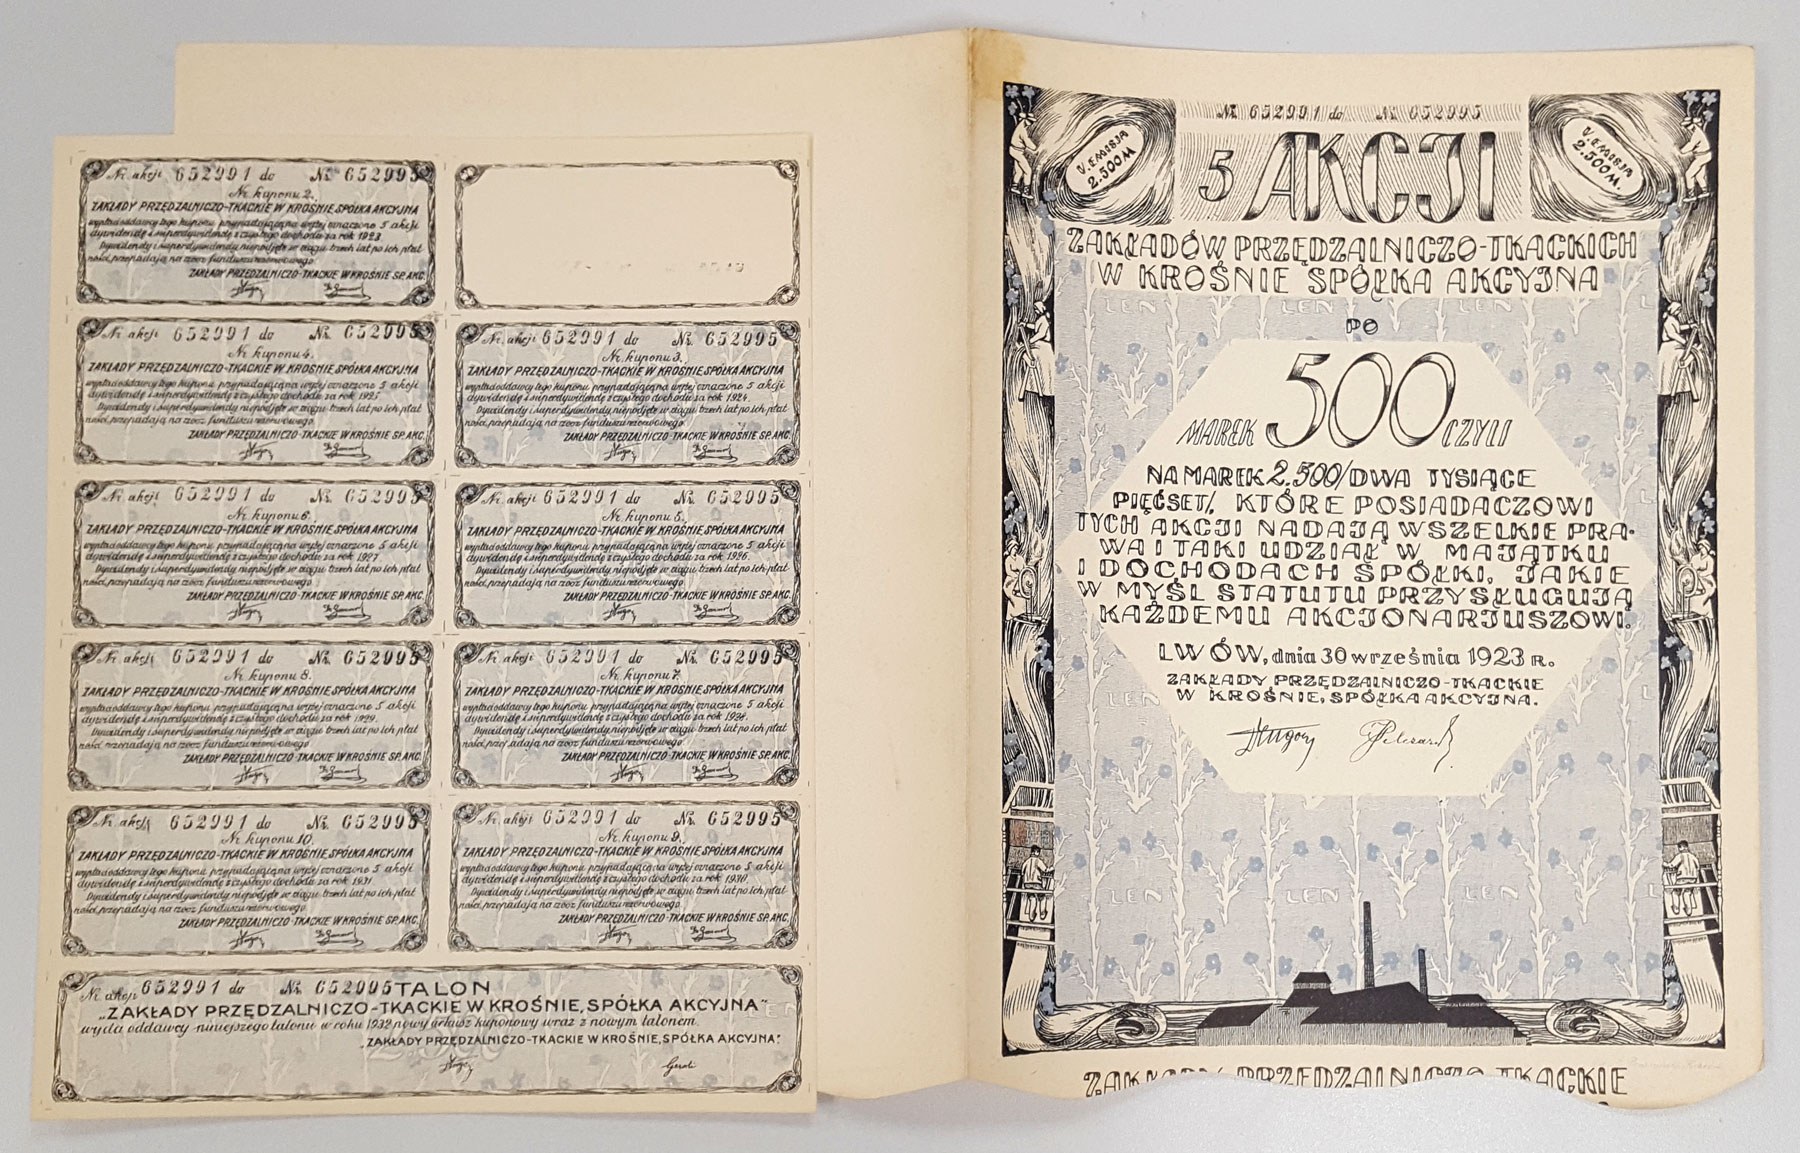 Nr. akcji 652991 do Nr. 652995
Nr. kuponu 2.
ZAKŁADY PRZĘDZALNICZO-TKACKIE W KROŚNIE, SPÓŁKA AKCYJNA
wypłaci oddawcy tego kuponu przypadającą na wyżej oznaczone 5 akcji
dywidendę i superdywidendę z czystego dochodu za rok 1923.
Dywidendy i superdywidendy niepodjęte w ciągu trzech lat po ich płat
ności, przepadają na rzecz funduszu rezerwowego.
ZAKŁADY PRZĘDZALNICZO-TKACKIE W KROŚNIE SP. AKC.
Nr. akcji 652991 do Nr. 652995
Nr. kuponu 4.
ZAKŁADY PRZĘDZALNICZO-TKACKIE W KROŚNIE, SPÓŁKA AKCYJNA
wypłaci oddawcy tego kuponu przypadającą na wyżej oznaczone 5 akcji
dywidendę i superdywidendę z czystego dochodu za rok 1925.
Dywidendy i superdywidendy niepodjęte w ciągu trzech lat po ich płat
ności, przepadają na rzecz funduszu rezerwowego.
ZAKŁADY PRZĘDZALNICZO-TKACKIE W KROŚNIE SP. AKC.
Nr. akcji 652991 do Nr. 652995
Nr. kuponu 3.
ZAKŁADY PRZĘDZALNICZO-TKACKIE W KROŚNIE, SPÓŁKA AKCYJNA
wypłaci oddawcy tego kuponu przypadającą na wyżej oznaczone 5 akcji
dywidendę i superdywidendę z czystego dochodu za rok 1924.
Dywidendy i superdywidendy niepodjęte w ciągu trzech lat po ich płat
ności, przepadają na rzecz funduszu rezerwowego.
ZAKŁADY PRZĘDZALNICZO-TKACKIE W KROŚNIE SP. AKC.
Nr. akcji 652991 do Nr. 652995
Nr. kuponu 6.
ZAKŁADY PRZĘDZALNICZO-TKACKIE W KROŚNIE, SPÓŁKA AKCYJNA
wypłaci oddawcy tego kuponu przypadającą na wyżej oznaczone 5 akcji
dywidendę i superdywidendę z czystego dochodu za rok 1927.
Dywidendy i superdywidendy niepodjęte w ciągu trzech lat po ich płat
ności, przepadają na rzecz funduszu rezerwowego.
ZAKŁADY PRZĘDZALNICZO-TKACKIE W KROŚNIE SP. AKC.
Nr. akcji 652991 do Nr. 652995
Nr. kuponu 5.
ZAKŁADY PRZĘDZALNICZO-TKACKIE W KROŚNIE, SPÓŁKA AKCYJNA
wypłaci oddawcy tego kuponu przypadającą na wyżej oznaczone 5 akcji
dywidendę i superdywidendę z czystego dochodu za rok 1926.
Dywidendy i superdywidendy niepodjęte w ciągu trzech lat po ich płat
ności, przepadają na rzecz funduszu rezerwowego.
ZAKŁADY PRZĘDZALNICZO-TKACKIE W KROŚNIE SP. AKC.
Nr. akcji 652991 do Nr. 652995
Nr. kuponu 8.
ZAKŁADY PRZĘDZALNICZO-TKACKIE W KROŚNIE, SPÓŁKA AKCYJNA
wypłaci oddawcy tego kuponu przypadającą na wyżej oznaczone 5 akcji
dywidendę i superdywidendę z czystego dochodu za rok 1929.
Dywidendy i superdywidendy niepodjęte w ciągu trzech lat po ich płat
ności, przepadają na rzecz funduszu rezerwowego.
ZAKŁADY PRZĘDZALNICZO-TKACKIE W KROŚNIE SP. AKC.
Nr. akcji 652991 do Nr. 652995
Nr. kuponu 7.
ZAKŁADY PRZĘDZALNICZO-TKACKIE W KROŚNIE, SPÓŁKA AKCYJNA
wypłaci oddawcy tego kuponu przypadającą na wyżej oznaczone 5 akcji
dywidendę i superdywidendę z czystego dochodu za rok
Dywidendy i superdywidendy niepodjęte w ciągu trzech lat po ich płat
ności, przepadają na rzecz funduszu rezerwowego.
ZAKŁADY PRZĘDZALNICZO-TKACKIE W KROŚNIE SP. AKC.
Nr. akcji 652991 do Nr. 652995
Nr. kuponu 10.
ZAKŁADY PRZĘDZALNICZO-TKACKIE W KROŚNIE, SPÓŁKA AKCYJNA
wypłaci oddawcy tego kuponu przypadającą na wyżej oznaczone 5 akcji
dywidendę i superdywidendę z czystego dochodu za rok 1931.
Dywidendy i superdywidendy niepodjęte w ciągu trzech lat po ich płat
ności, przepadają na rzecz funduszu rezerwowego.
ZAKŁADY PRZĘDZALNICZO-TKACKIE W KROŚNIE SP. AKC.
Nr. akcji 652991 do Nr. 652995
Nr. kuponu 9.
ZAKŁADY PRZĘDZALNICZO-TKACKIE W KROŚNIE, SPÓŁKA AKCYJNA
wypłaci oddawcy tego kuponu przypadającą na wyżej oznaczone 5 akcji
dywidendę i superdywidendę z czystego dochodu za rok
Dywidendy i superdywidendy niepodjęte w ciągu trzech lat po ich płat
ności, przepadają na rzecz funduszu rezerwowego.
ZAKŁADY PRZĘDZALNICZO-TKACKIE W KROŚNIE SP. AKC.
Nr. akcji 652991 do Nr. 652995 TALON
„ZAKŁADY PRZĘDZALNICZO-TKACKIE W KROŚNIE, SPÓŁKA AKCYJNA"
wyda oddawcy niniejszego talonu w roku 1932 nowy arkusz kuponowy wraz z nowym talonem.
„ZAKŁADY PRZĘDZALNICZO-TKACKIE W KROŚNIE, SPÓŁKA AKCYJNA."
Nr. 652991 do Nr. 652995
V. EMISJA
2.500 M
5 AKCJI
V. EMISJA
2.500 M.
ZAKŁADÓW PRZĘDZALNICZO-TKACKICH
W KROŚNIE SPÓŁKA AKCYJNA
LEN LEN LEN
PO
MAREK 500 CZYLI
NA MAREK 2.500/DWA TYSIĄCE
PIĘĆSET/, KTÓRE POSIADACZOWI
TYCH AKCJI NADAJĄ WSZELKIE PRA-
WA I TAKI UDZIAŁ W MAJĄTKU
I DOCHODACH SPÓŁKI, JAKIE
W MYŚL STATUTU PRZYSŁUGUJĄ
KAŻDEMU AKCJONARJUSZOWI.
LWÓW, dnia 30 września 1923 R.
ZAKŁADY PRZĘDZALNICZO-TKACKIE
W KROŚNIE, SPÓŁKA AKCYJNA.
LEN LEN LEN
ZAKŁADY PRZĘDZALNICZO-TKACKIE